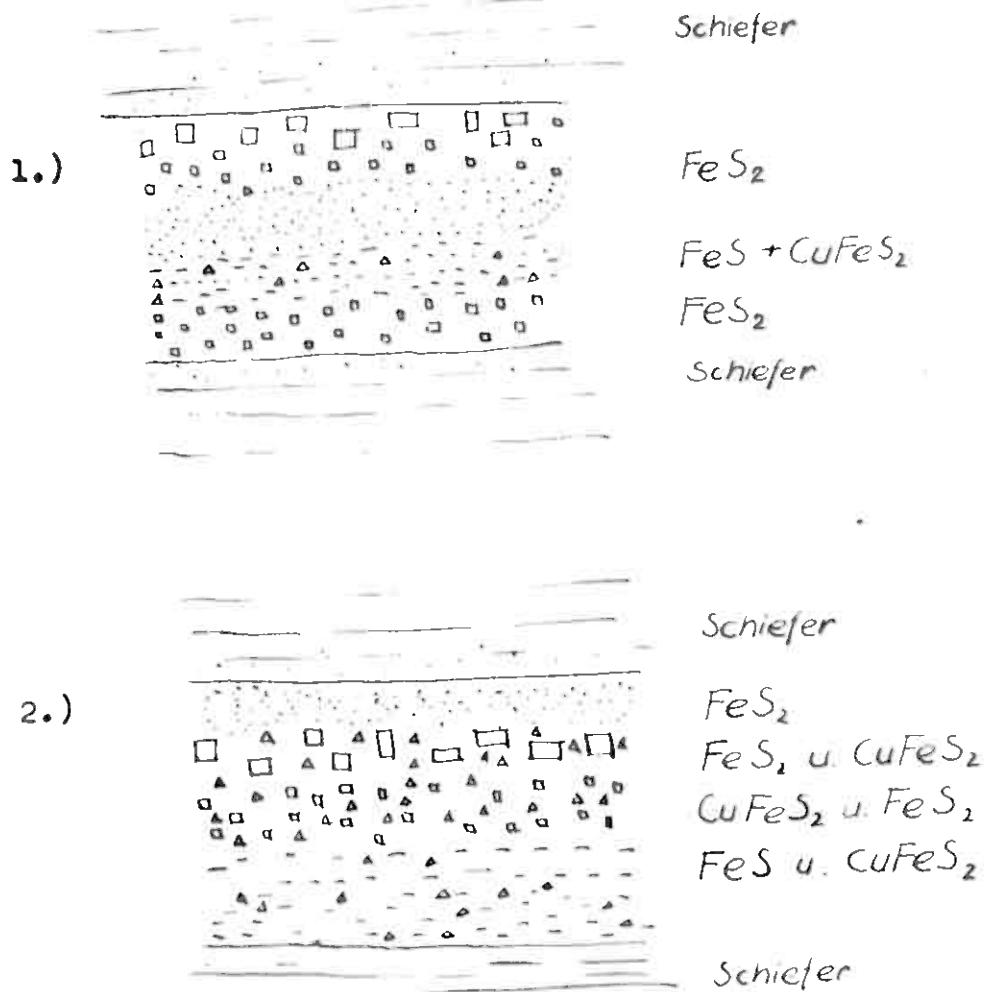 Schiefer
1.)
FeS₂
FeS + CuFeS₂
FeS₂
Schiefer
Schiefer
2.)
FeS₂
FeS₂ u. CuFeS₂
CuFeS₂ u. FeS₂
FeS u. CuFeS₂
Schiefer